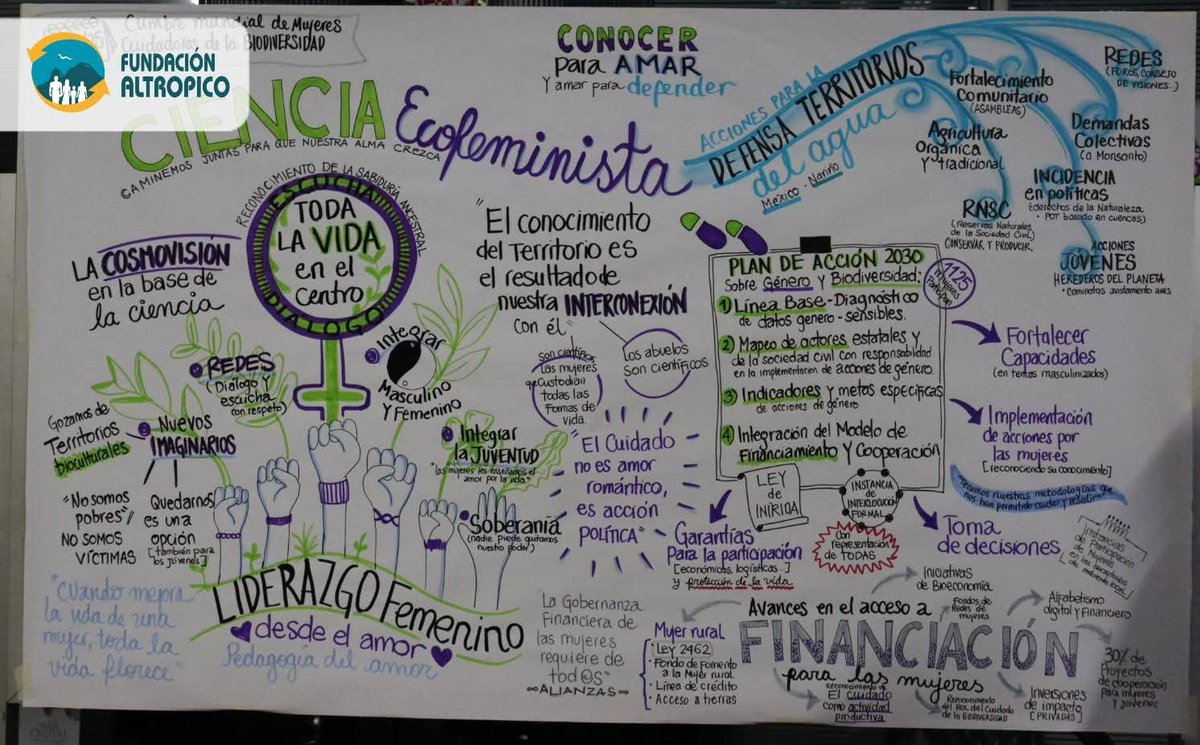 FUNDACIÓN
ALTROPICO
Cumbre mundial de Mujeres
Cuidadoras de la BIODIVERSIDAD
CIENCIA Ecofeminista
CAMINEMOS JUNTAS PARA QUE NUESTRA ALMA CREZCA
CONOCER
para AMAR
Y amar para defender
ACCIONES PARA LA
DEFENSA TERRITORIOS
del agua
México - Nariño
REDES
(FOROS, CONSEJO
DE VISIONES...)
Fortalecimiento
Comunitario
(ASAMBLEAS)
Agricultura
Orgánica
y tradicional
Demandas
Colectivas
(a Monsanto)
INCIDENCIA
en políticas
(derechos de la Naturaleza
• POT basado en cuencas)
RNSC
(Reservas Naturales
de la Sociedad Civil)
CONSERVAR Y PRODUCIR
ACCIONES
JÓVENES
HEREDEROS DEL PLANETA
RECONOCIMIENTO DE LA SABIDURÍA ANCESTRAL
ESCUCHA
TODA
LA VIDA
en el
Centro
DIALOGO
LA COSMOVISIÓN
en la base de
la ciencia
"El conocimiento
del Territorio es
el resultado de
nuestra INTERCONEXIÓN
con él"
Son científicas
las mujeres
que custodian
todas las
formas de
vida.
Los abuelos
son científicos
REDES
(Diálogo y
escucha
con respeto)
Integrar
Masculino
y Femenino
Gozamos de
Territorios
bioculturales
2 Nuevos
IMAGINARIOS
"No somos
pobres"
NO SOMOS
VÍCTIMAS
Quedarnos
es una
opción
[también para
los jóvenes]
Integrar
la JUVENTUD
"las mujeres les enseñamos el
amor por la vida"
Soberanía
(nadie puede quitarnos
nuestro poder)
"El Cuidado
no es amor
romántico,
es acción
POLÍTICA"
"Cuando mejora
la vida de una
mujer, toda la
vida florece"
LIDERAZGO Femenino
desde el amor
Pedagogía del amor
PLAN DE ACCIÓN 2030
Sobre Género y Biodiversidad:
1125
1) Línea Base - Diagnóstico
de datos genero-sensibles.
2) Mapeo de actores estatales y
de la sociedad civil con responsabilidad
en la implementación de acciones de género.
3) Indicadores y metas específicas
de acciones de género
4) Integración del Modelo de
Financiamiento y Cooperación
LEY
de
INÍRIDA
INSTANCIA
de
INTERLOCUCIÓN
FORMAL
Con
representación
de TODAS
Fortalecer
Capacidades
(en temas masculinizados)
Implementación
de acciones por
las mujeres
[reconociendo su conocimiento]
"Tenemos nuestras metodologías que
nos han permitido cuidar y resistir"
Toma
de decisiones
Instancias
de Participación
de Mujeres
Garantías
Para la participación
[económicas, logísticas..]
y protección de la vida
La Gobernanza
Financiera de
las mujeres
requiere de
tod@s"
ALIANZAS
Mujer rural
• Ley 2462
• Fondo de Fomento
a la Mujer rural
• Línea de crédito
• Acceso a tierras
Avances en el acceso a
FINANCIACIÓN
para las mujeres
Iniciativas
de Bioeconomía
Fondos de
Redes de
mujeres
Alfabetismo
digital y Financiero
30% de
Proyectos
de cooperación
para mujeres
y jóvenes
Inversiones
de impacto
[PRIVADAS]
Reconocimiento
del ROL del Cuidado
de la BIODIVERSIDAD
Reconocimiento de
El cuidado
como actividad
productiva